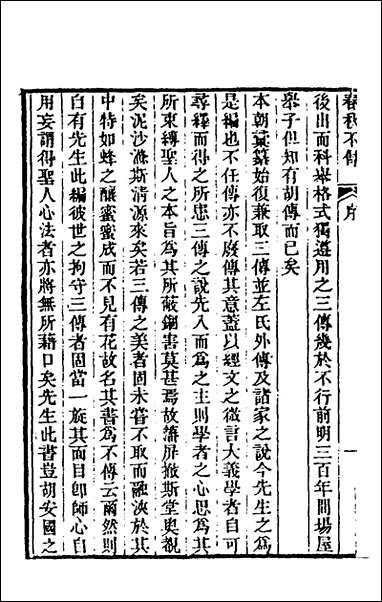 春秋不傳 序 一
後出而科舉格式獨遵用之三傳幾於不行前明三百年間場屋
舉子但知有胡傳而已矣
本朝纂纂始復兼取三傳並左氏外傳及諸家之說今先生之為
是編也不任傳亦不廢傳其意蓋以經文之微言大義學者自可
尋釋而得之所患三傳之說先入而為之主則學者之心思為其
所束縛聖人之本旨為其所蔽錮害莫甚焉故藩屏撤斯堂奧覩
矣泥沙滌斯清源來矣若三傳之美者固未嘗不取而融浹於其
中特如蜂之釀蜜蜜成而不見有花故名其書為不傳云爾然則
自有先生此編彼世之拘守三傳者固當一旋其面目卽師心自
用妄謂得聖人心法者亦將無所藉口矣先生此書豈胡安國之